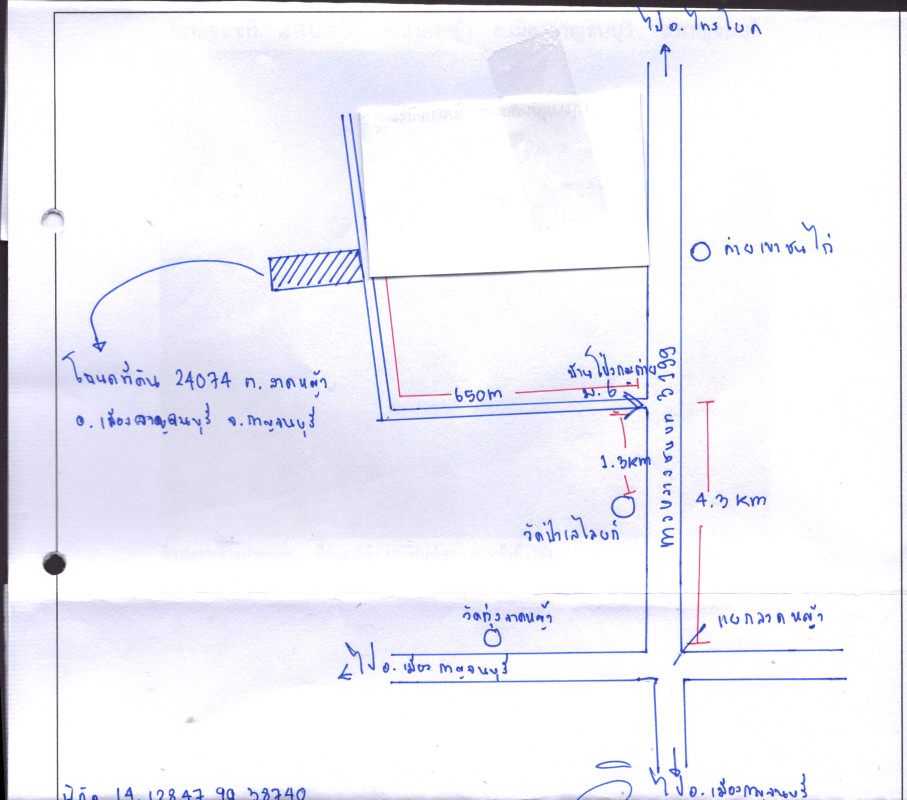 ไป อ.ไทรโยค
ค่ายเขาชนไก่
โฉนดที่ดิน 24074 ต.ลาดหญ้า
อ.เมืองกาญจนบุรี จ.กาญจนบุรี
650m
บ้านโป่งกะต่าย
ม.6
ทางหลวงชนบท 3199
1.3km
4.3km
วัดป่าเลไลยก์
วัดทุ่งลาดหญ้า
แยกลาดหญ้า
ไป อ.เมืองกาญจนบุรี
ไป อ.เมืองกาญจนบุรี
พิกัด 14.12847 99.38740